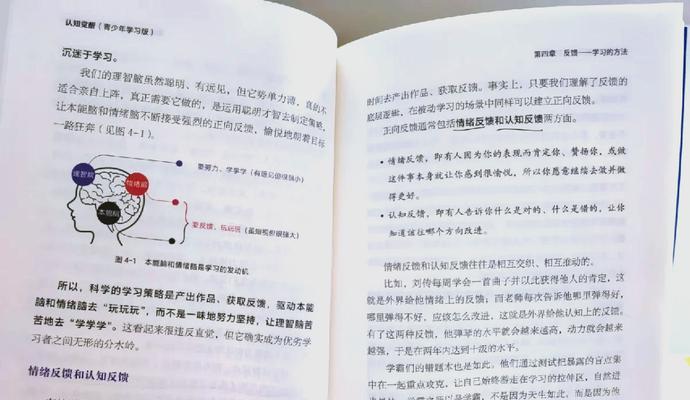 认知觉醒（青少年学习版）
沉迷于学习。
我们的理智脑虽然聪明、有远见，但它势单力薄，真的不
适合亲自上阵，真正需要它做的，是运用聪明才智去制定策略，
让本能脑和情绪脑不断接受强烈的正向反馈，愉悦地朝着目标
一路狂奔（见图 4-1）。
理智脑
情绪脑
本能脑
要努力、学学学（有远见但很弱小）
要反馈、玩玩玩（虽短视但很强大）
图 4-1 本能脑和情绪脑是学习的发动机
所以，科学的学习策略是产出作品、获取反馈，驱动本能
脑和情绪脑去“玩玩玩”，而不是一味地努力坚持，让理智脑苦
苦地去“学学学”。这看起来很违反直觉，但它确实成为优劣学
习者之间无形的分水岭。
情绪反馈和认知反馈
第四章 反馈——学习的方法
时间去产出作品、获取反馈。事实上，只要我们理解了反馈的
底层逻辑，在被动学习的场景中同样可以建立正向反馈。
正向反馈通常包括情绪反馈和认知反馈两方面。
• 情绪反馈，即有人因为你的表现而肯定你、赞扬你，或做
这件事本身就让你感到很愉悦，所以你愿意继续去做并做
得更好。
• 认知反馈，即有人告诉你什么是对的、什么是错的，让你
知道该往哪个方向改进。
情绪反馈和认知反馈往往是相互交织、相互推动的。
比如，刘传每周学会一首曲子并以此获得他人的肯定，这
就是外界给他情绪上的反馈；而老师每次告诉他哪里弹得好，
哪里弹得不好、应该怎么改进，这就是外界给他认知上的反馈。
有了这两种反馈，他弹琴的水平就会越来越高，动力就会越来
越强，于是在两年内达到十级的水平。
学霸们的错题本也是如此。他们通过测试把暴露的盲点集
中在一起重点攻克，让自己始终游走在学习的拉伸区，自然进